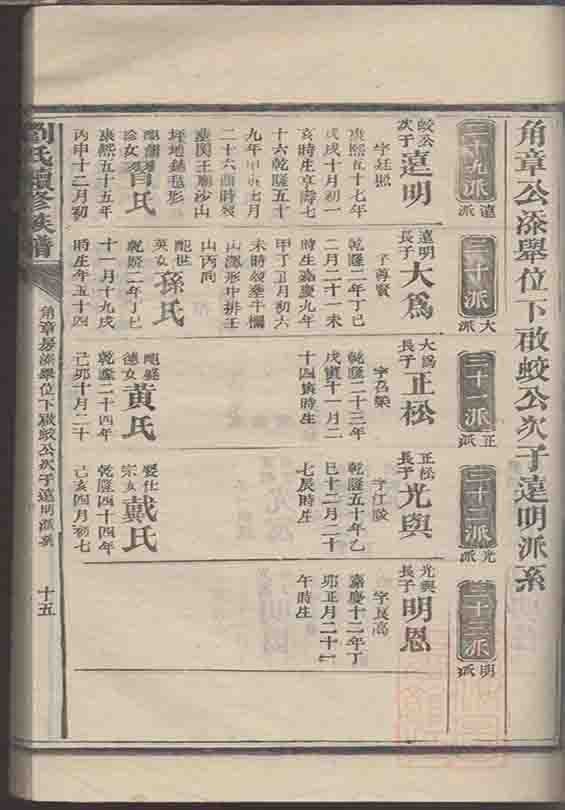 角章公添舉位下啟蛟公次子遠明派系
三十九派
遠派
三十派
大派
三十一派
正派
三十二派
光派
三十三派
明派
蛟公次子遠明
字廷照
康熙五十七年
戊戌十月初一
亥時生享壽七
十六乾隆五十
九年甲寅七月
二十六酉時歿
坪地毯毡形
氏
康熙五十五年
丙申十二月初
遠明長子大為
字尊賢
乾隆二年丁巳
二月二十一未
時生嘉慶九年
甲子正月初六
未時歿葬牛欄
山丙向
配世英女孫氏
乾隆二年丁巳
十一月十九戌
時生年五十四
大為長子正松
乾隆二十三年
戊寅十一月二
十四寅時生
德女黃氏
乾隆二十四年
己卯十月二十
正松長子光與
乾隆五十年乙
巳十二月二十
七辰時生
宗女戴氏
乾隆四十四年
己亥四月初七
光與長子明恩
字長高
嘉慶十二年丁
卯正月二十一
午時生
劉氏續修族譜
角章房添舉位下啟蛟公次子遠明派系
十五